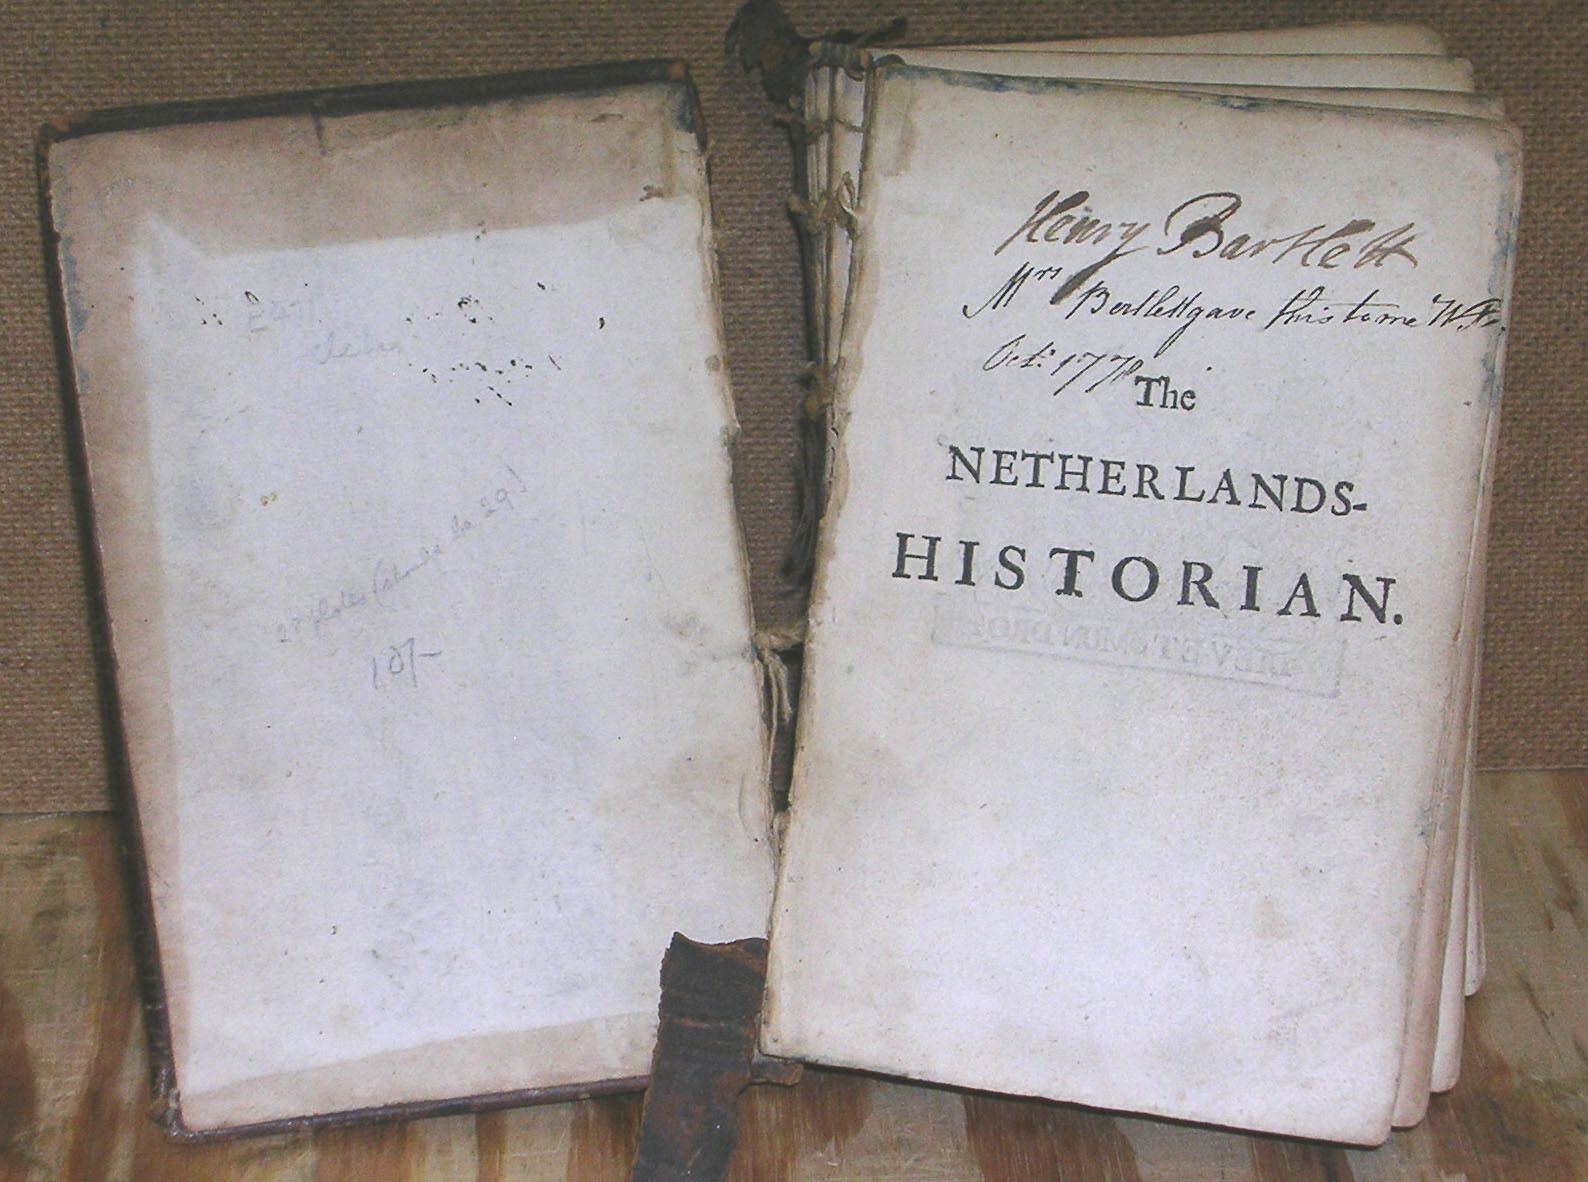 23 plates (should be 29)
10/-
Henry Bartlett
Mrs Bartlett gave this to me
Oct: 1778
The
NETHERLANDS-
HISTORIAN.